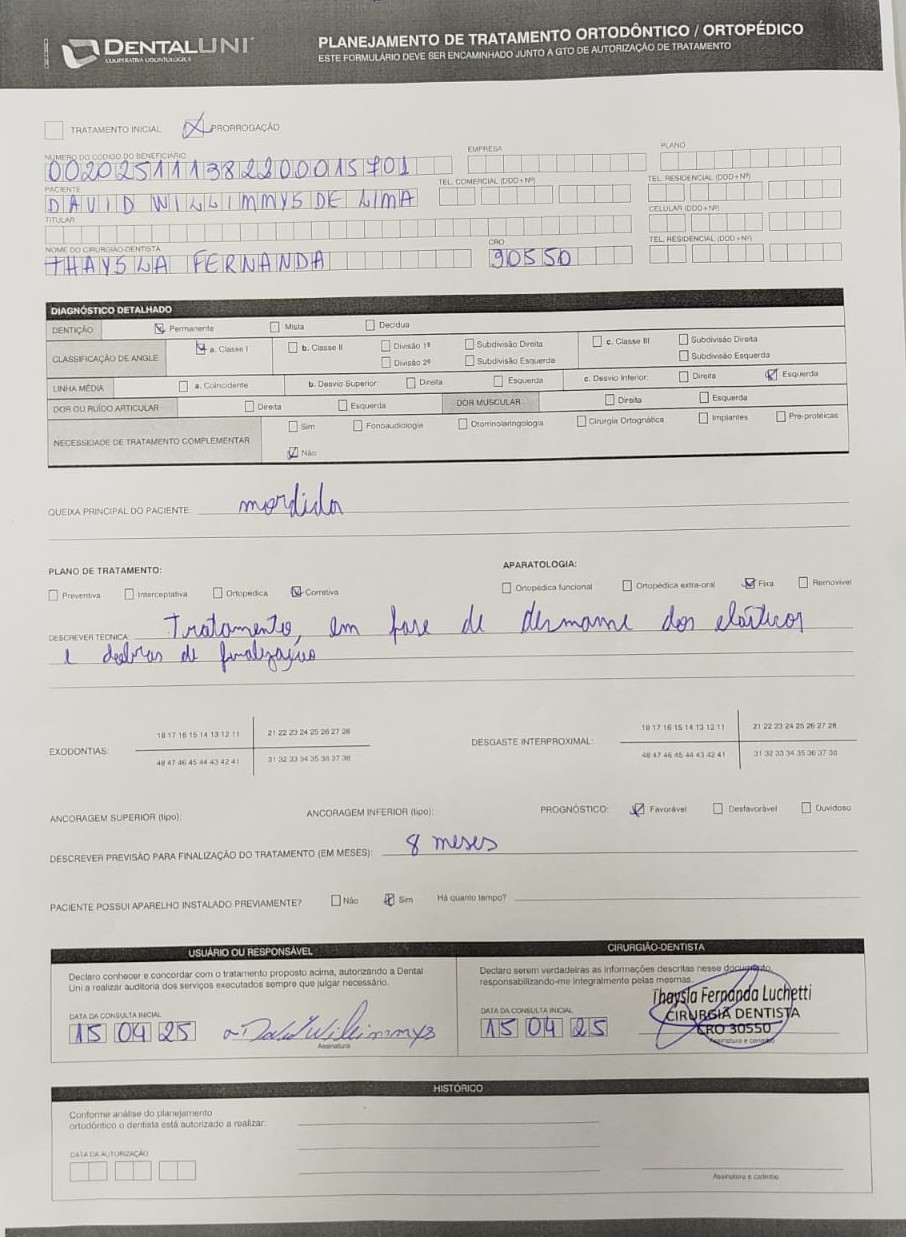 DENTALUNI
COOPERATIVA ODONTOLÓGICA
PLANEJAMENTO DE TRATAMENTO ORTODÔNTICO / ORTOPÉDICO
ESTE FORMULÁRIO DEVE SER ENCAMINHADO JUNTO A GTO DE AUTORIZAÇÃO DE TRATAMENTO
TRATAMENTO INICIAL PRORROGAÇÃO
NÚMERO DO CÓDIGO DO BENEFICIÁRIO EMPRESA PLANO
002025111382200015701
PACIENTE TEL. COMERCIAL (DDD + Nº) TEL. RESIDENCIAL (DDD + Nº)
DAVID WILLIMMYS DE LIMA
TITULAR CELULAR (DDD + Nº)
NOME DO CIRURGIÃO-DENTISTA CRO TEL. RESIDENCIAL (DDD + Nº)
THAYSLA FERNANDA 90550
DIAGNÓSTICO DETALHADO
DENTIÇÃO Permanente Mista Decídua
CLASSIFICAÇÃO DE ANGLE a. Classe I b. Classe II Divisão 1ª Subdivisão Direita c. Classe III Subdivisão Direita
Divisão 2ª Subdivisão Esquerda Subdivisão Esquerda
LINHA MÉDIA a. Coincidente b. Desvio Superior: Direita Esquerda c. Desvio Inferior: Direita Esquerda
DOR OU RUÍDO ARTICULAR Direita Esquerda DOR MUSCULAR Direita Esquerda
NECESSIDADE DE TRATAMENTO COMPLEMENTAR Sim Fonoaudiologia Otorrinolaringologia Cirurgia Ortognática Implantes Pré-protéticas
Não
QUEIXA PRINCIPAL DO PACIENTE mordida
PLANO DE TRATAMENTO: APARATOLOGIA:
Preventiva Interceptativa Ortopédica Corretiva Ortopédica funcional Ortopédica extra-oral Fixa Removível
DESCREVER TÉCNICA Tratamento, em fase de desmame dos elásticos
e dobras de finalização
18 17 16 15 14 13 12 11 21 22 23 24 25 26 27 28 18 17 16 15 14 13 12 11 21 22 23 24 25 26 27 28
EXODONTIAS: DESGASTE INTERPROXIMAL:
48 47 46 45 44 43 42 41 31 32 33 34 35 36 37 38 48 47 46 45 44 43 42 41 31 32 33 34 35 36 37 38
ANCORAGEM SUPERIOR (tipo): ANCORAGEM INFERIOR (tipo): PROGNÓSTICO: Favorável Desfavorável Duvidoso
DESCREVER PREVISÃO PARA FINALIZAÇÃO DO TRATAMENTO (EM MESES): 8 meses
PACIENTE POSSUI APARELHO INSTALADO PREVIAMENTE? Não Sim Há quanto tempo?
USUÁRIO OU RESPONSÁVEL CIRURGIÃO-DENTISTA
Declaro conhecer e concordar com o tratamento proposto acima, autorizando a Dental
Uni a realizar auditoria dos serviços executados sempre que julgar necessário.
Declaro serem verdadeiras as informações descritas nesse documento,
responsabilizando-me integralmente pelas mesmas.
DATA DA CONSULTA INICIAL
15 04 25 David Willimmys
Assinatura
DATA DA CONSULTA INICIAL
15 04 25
Thaysla Fernanda Luchetti
CIRURGIÃ DENTISTA
CRO 30550
Assinatura e carimbo
HISTÓRICO
Conforme análise do planejamento
ortodôntico o dentista está autorizado a realizar:
DATA DA AUTORIZAÇÃO
Assinatura e carimbo